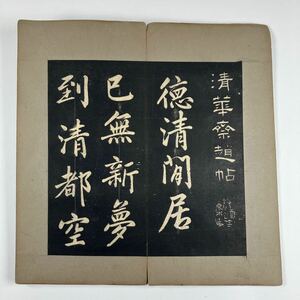 清華齋趙帖
德清閒居
已無新夢
到清都空